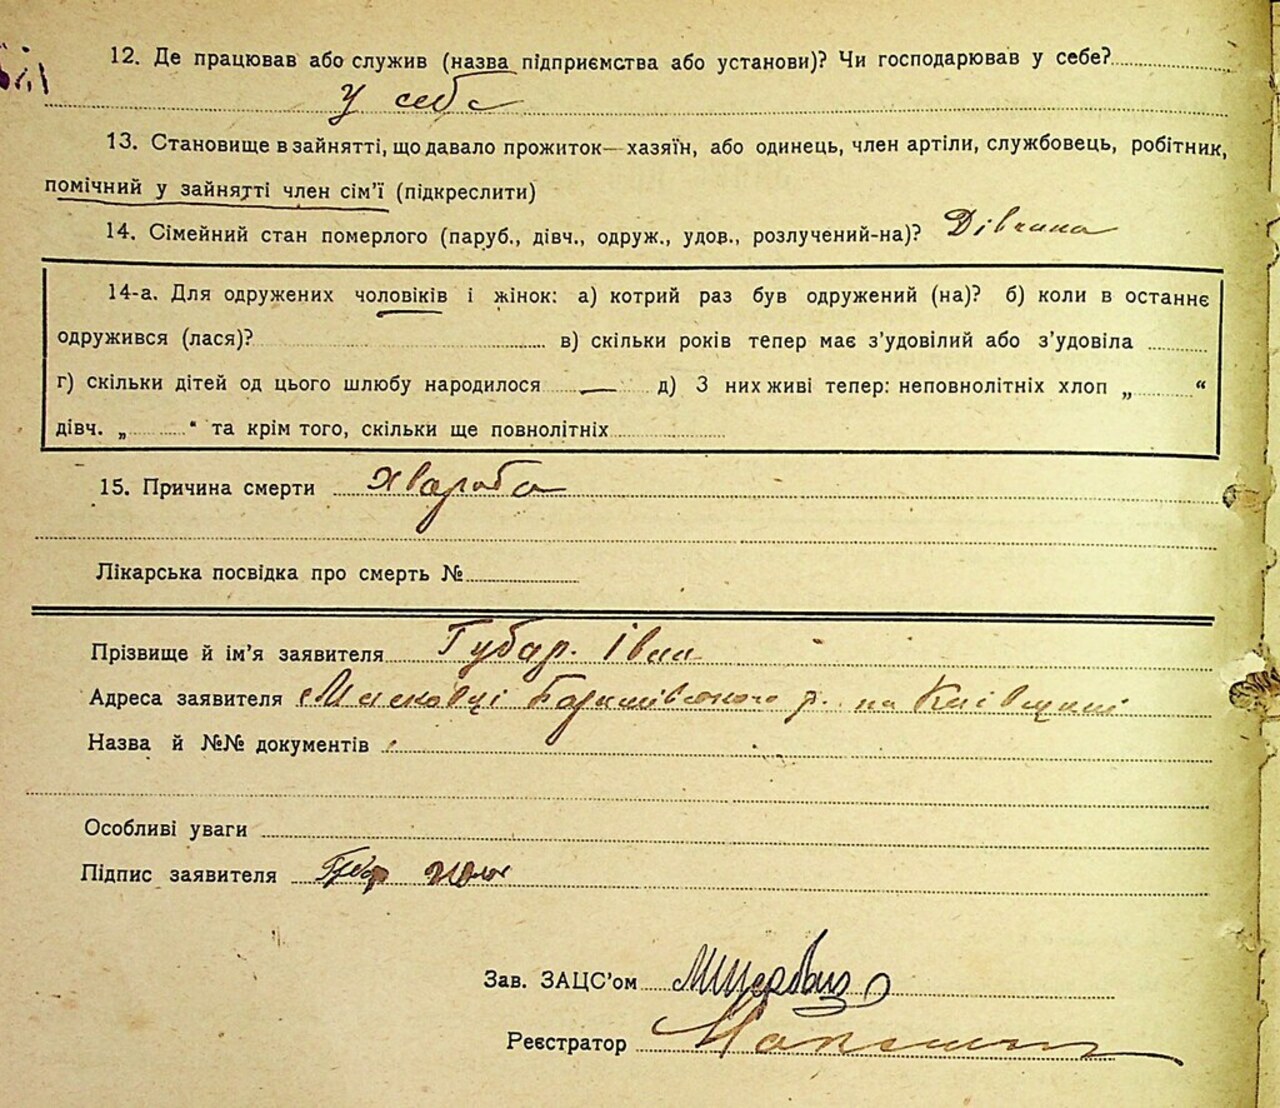 12. Де працював або служив (назва підприємства або установи)? Чи господарював у себе?
У себе
13. Становище в зайнятті, що давало прожиток—хазяїн, або одинець, член артіли, службовець, робітник,
помічний у зайнятті член сім'ї (підкреслити)
14. Сімейний стан померлого (паруб., дівч., одруж., удов., розлучений-на)? Дівчина
14-а. Для одружених чоловіків і жінок: а) котрий раз був одружений (на)? б) коли в останнє
одружився (лася)? в) скільки років тепер має з'удовілий або з'удовіла
г) скільки дітей од цього шлюбу народилося — д) З них живі тепер: неповнолітніх хлоп „ “
дівч. „ “ та крім того, скільки ще повнолітніх
15. Причина смерти Хвароба
Лікарська посвідка про смерть №
Прізвище й ім'я заявителя Губар. Іван
Адреса заявителя Масковці Баришівського р. на Київщині
Назва й №№ документів
Особливі уваги
Підпис заявителя Губар
Зав. ЗАЦС'ом
Реєстратор